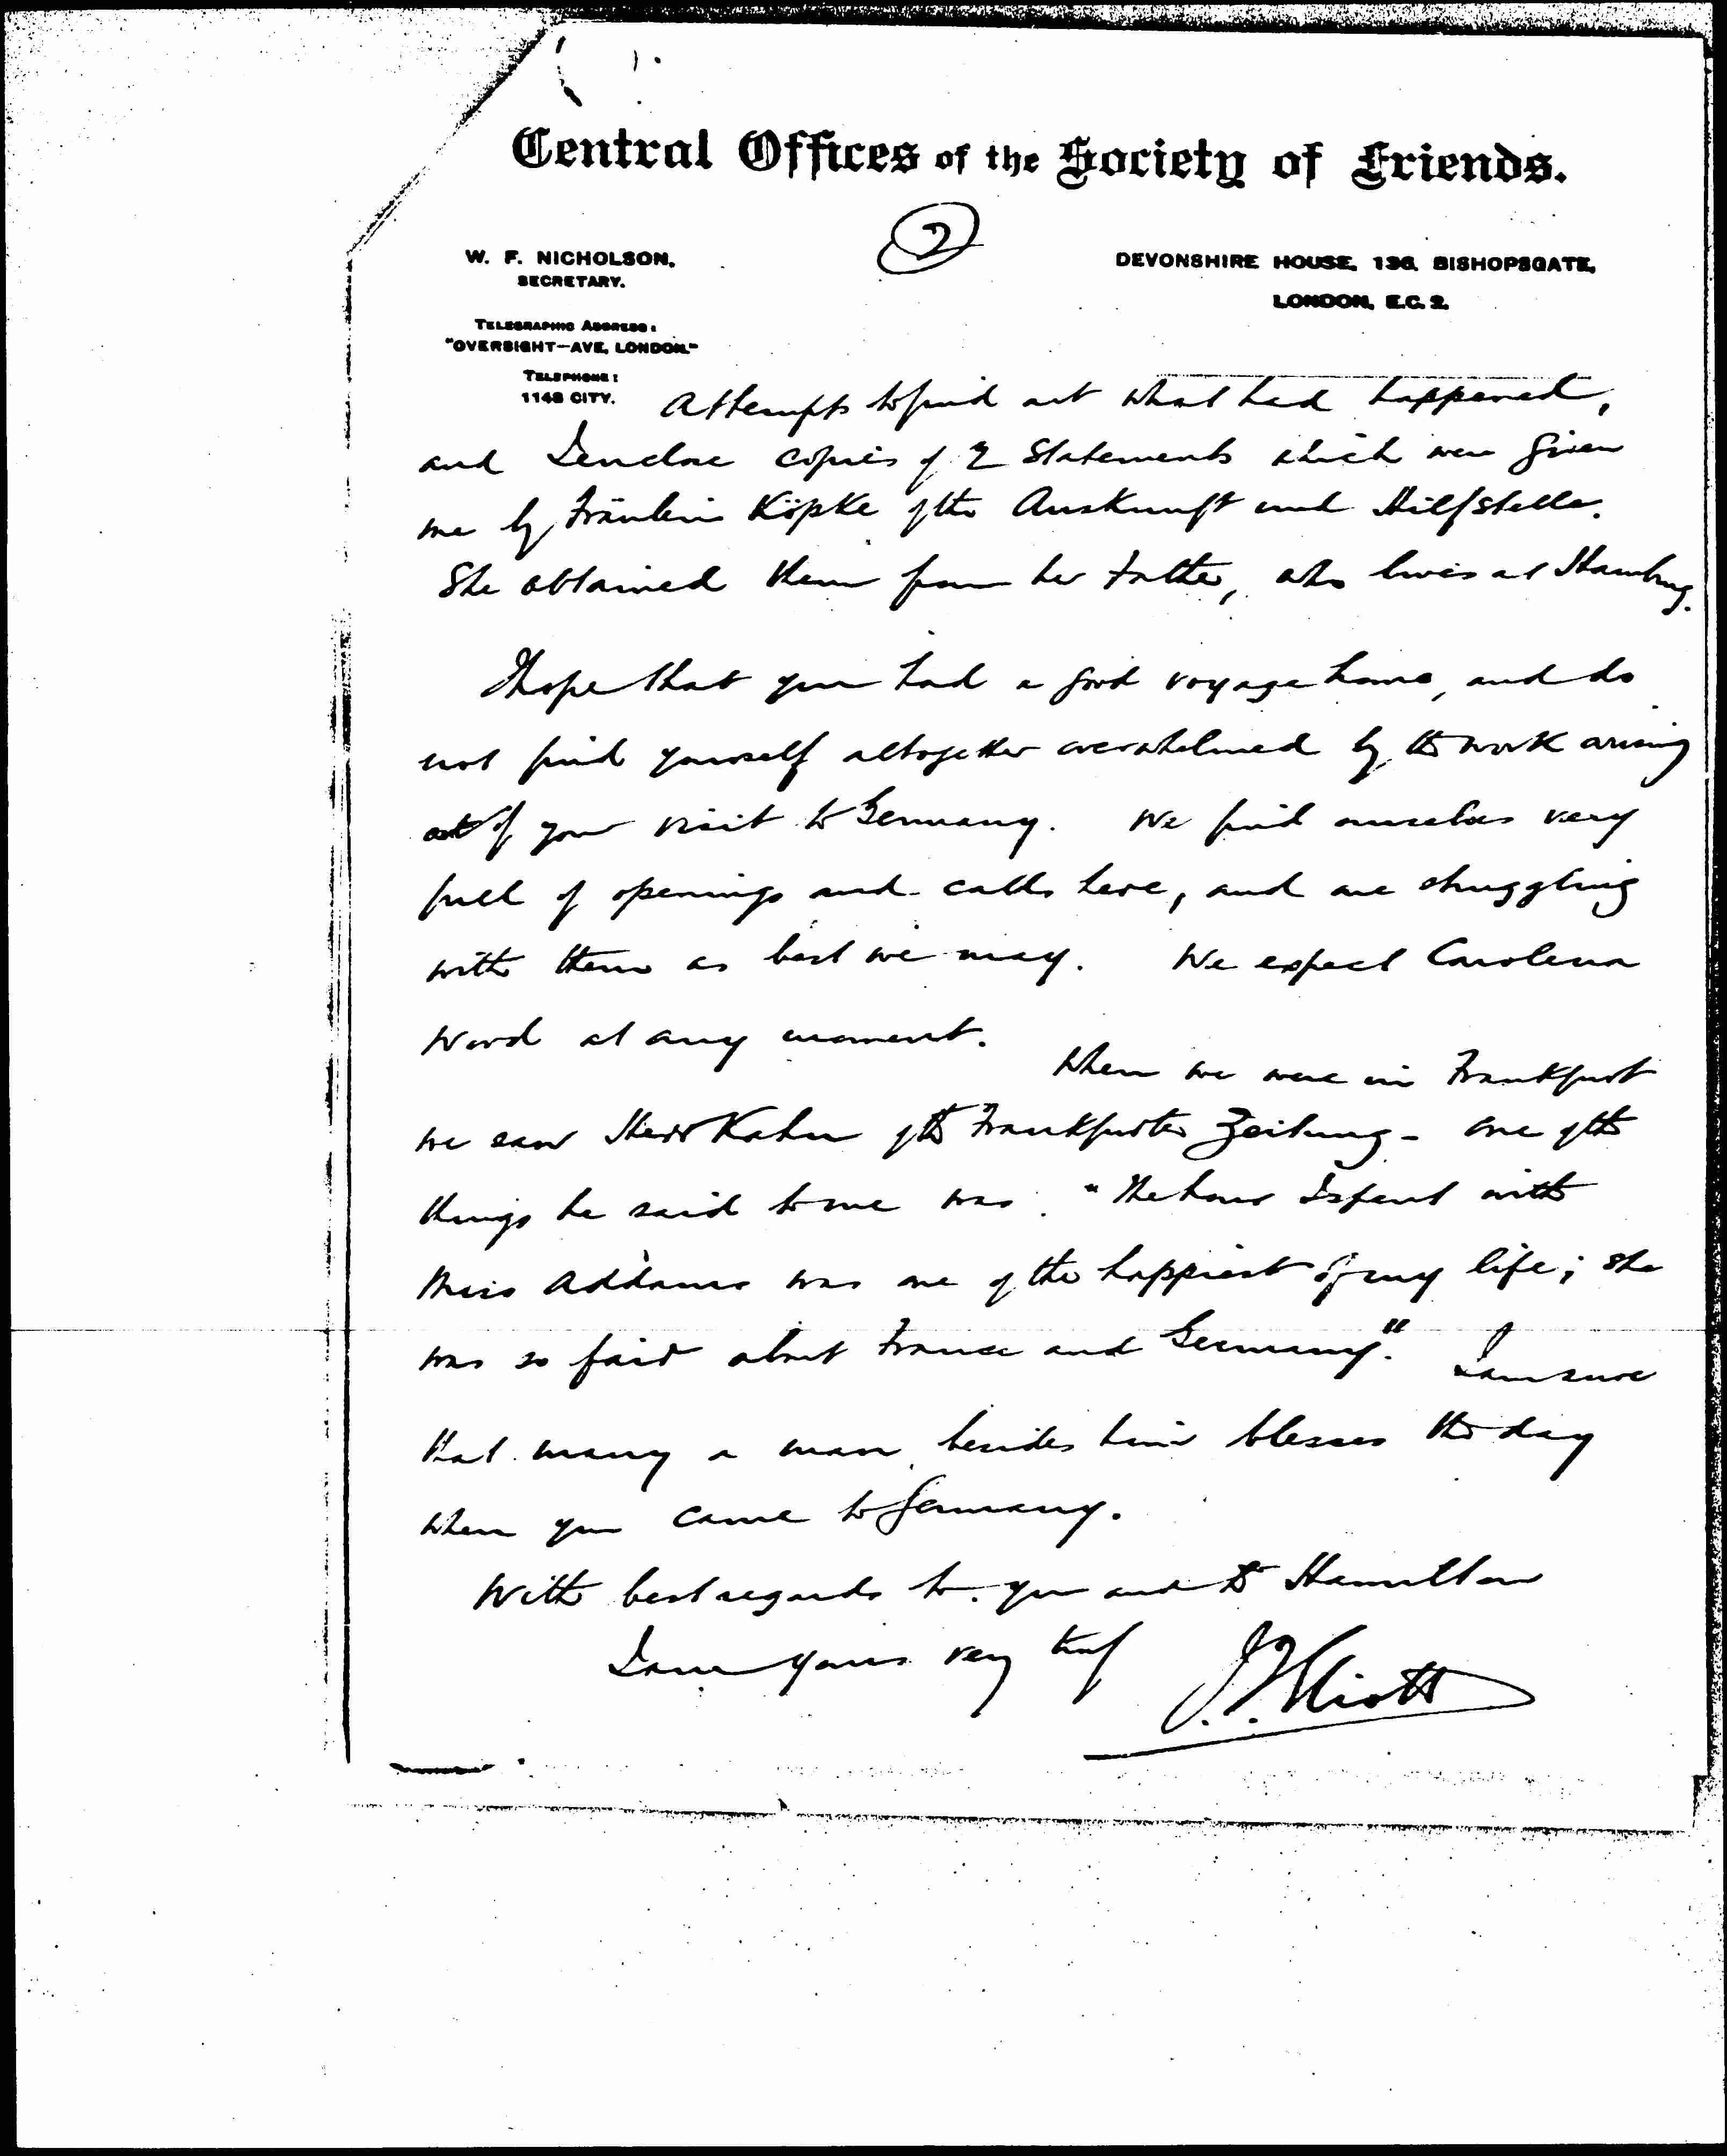 Central Offices of the Society of Friends.
2
W. F. NICHOLSON,
SECRETARY.
DEVONSHIRE HOUSE, 136, BISHOPSGATE,
LONDON, E.C. 2.
TELEGRAPHIC ADDRESS:
"OVERSIGHT—AVE, LONDON."
TELEPHONE:
1148 CITY.
Attempts to find out what had happened,
and I enclose copies of 2 statements which were given
me by Fräulein Köpke of the Auskunft und Hilfstelle.
She obtained them from her Father, who lives at Hamburg.
I hope that you had a good voyage home, and do
not find yourself altogether overwhelmed by the work arising
out of your visit to Germany. We find ourselves very
full of openings and calls here, and are struggling
with them as best we may. We expect Carolena
Wood at any moment.
When we were in Frankfurt
we saw Herr Kahn of the Frankfurter Zeitung - one of the
things he said to me was: "The hour I spent with
Miss Addams was one of the happiest of my life; she
was so fair about France and Germany." I am sure
that many a man besides him blesses the day
when you came to Germany.
With best regards to you and to Hamilton
I am yours very truly